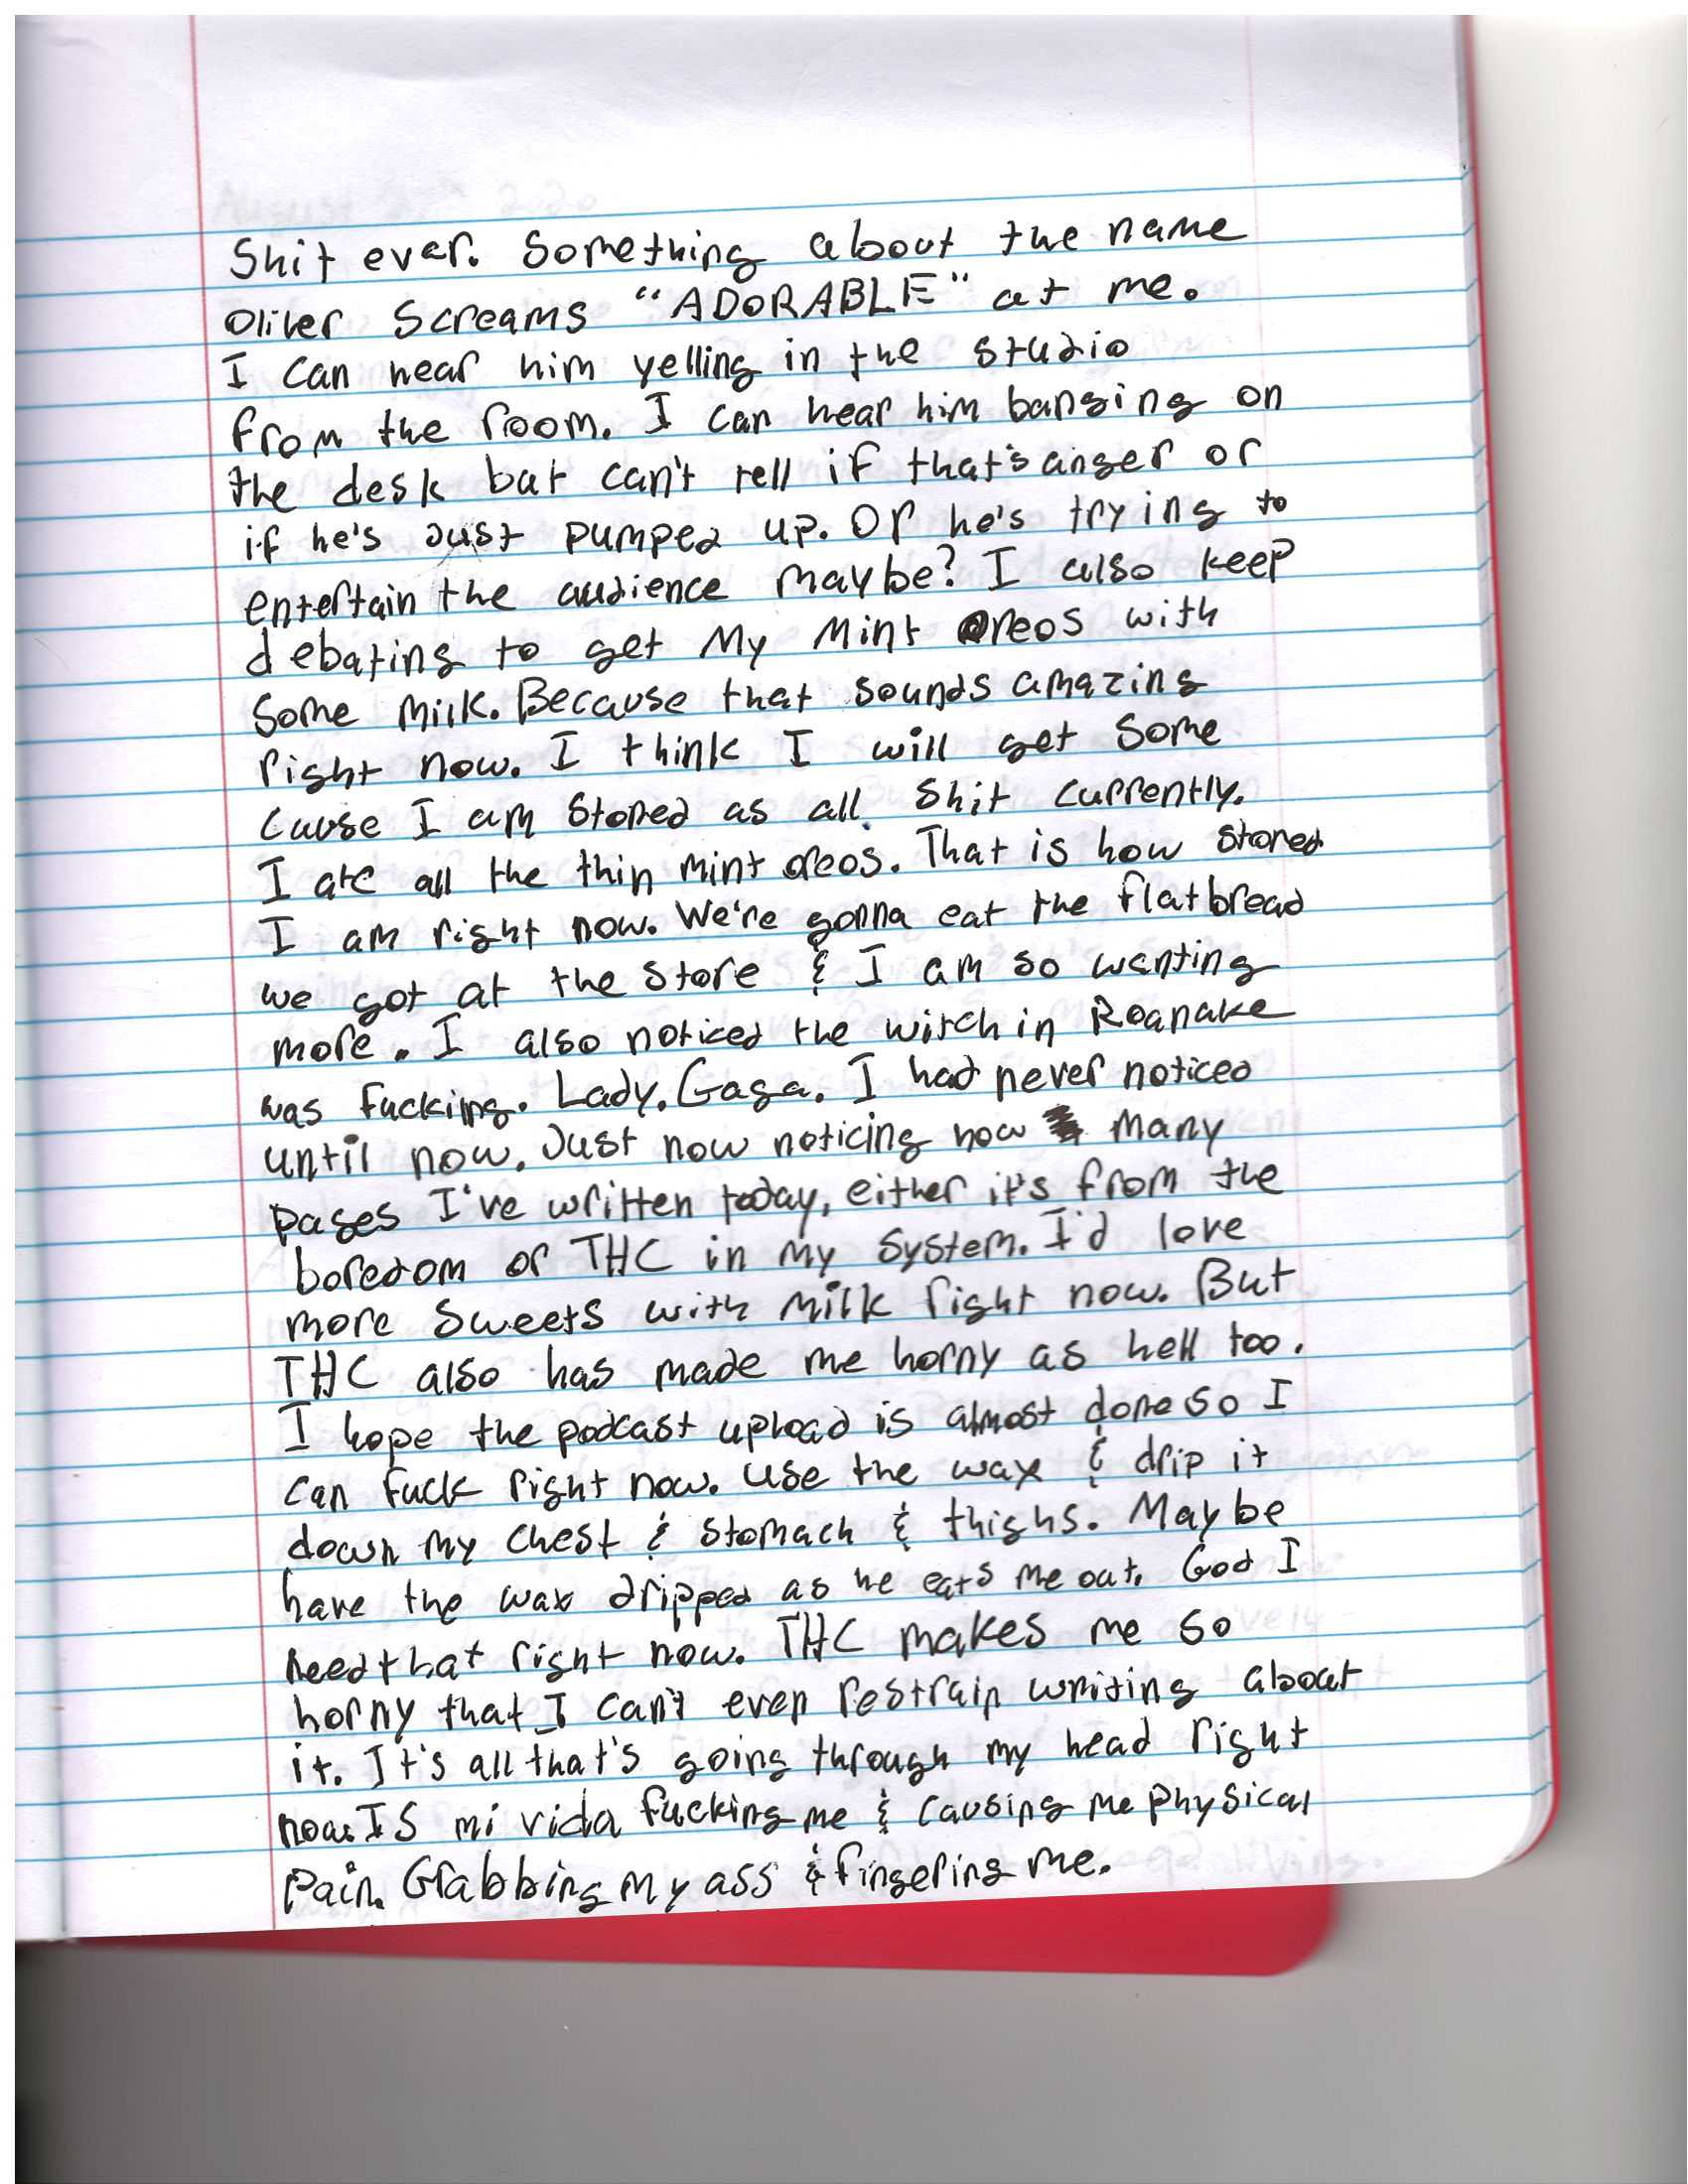 Shit ever. Something about the name
Oliver Screams "ADORABLE" at me.
I can hear him yelling in the studio
from the room. I can hear him banging on
the desk but can't tell if that's anger or
if he's Just pumped up. Or he's trying to
entertain the audience maybe? I also keep
debating to get My Mint Oreos with
Some Milk. Because that sounds amazing
right now. I think I will get some
cause I am stoned as all shit currently.
I ate all the thin mint oreos. That is how stoned
I am right now. We're gonna eat the flatbread
we got at the store & I am so wanting
more. I also noticed the witch in Roanake
was fucking. Lady. Gaga. I had never noticed
until now. Just now noticing how many
pages I've written today, either it's from the
boredom or THC in my system. I'd love
more sweets with milk right now. But
THC also has made me horny as hell too.
I hope the podcast upload is almost done so I
can fuck right now. Use the wax & drip it
down my chest & stomach & thighs. Maybe
have the wax dripped as he eats me out. God I
need that right now. THC makes me so
horny that I can't even restrain writing about
it. It's all that's going through my head right
now. IS mi vida fucking me & causing me physical
pain. Grabbing my ass & fingering me.